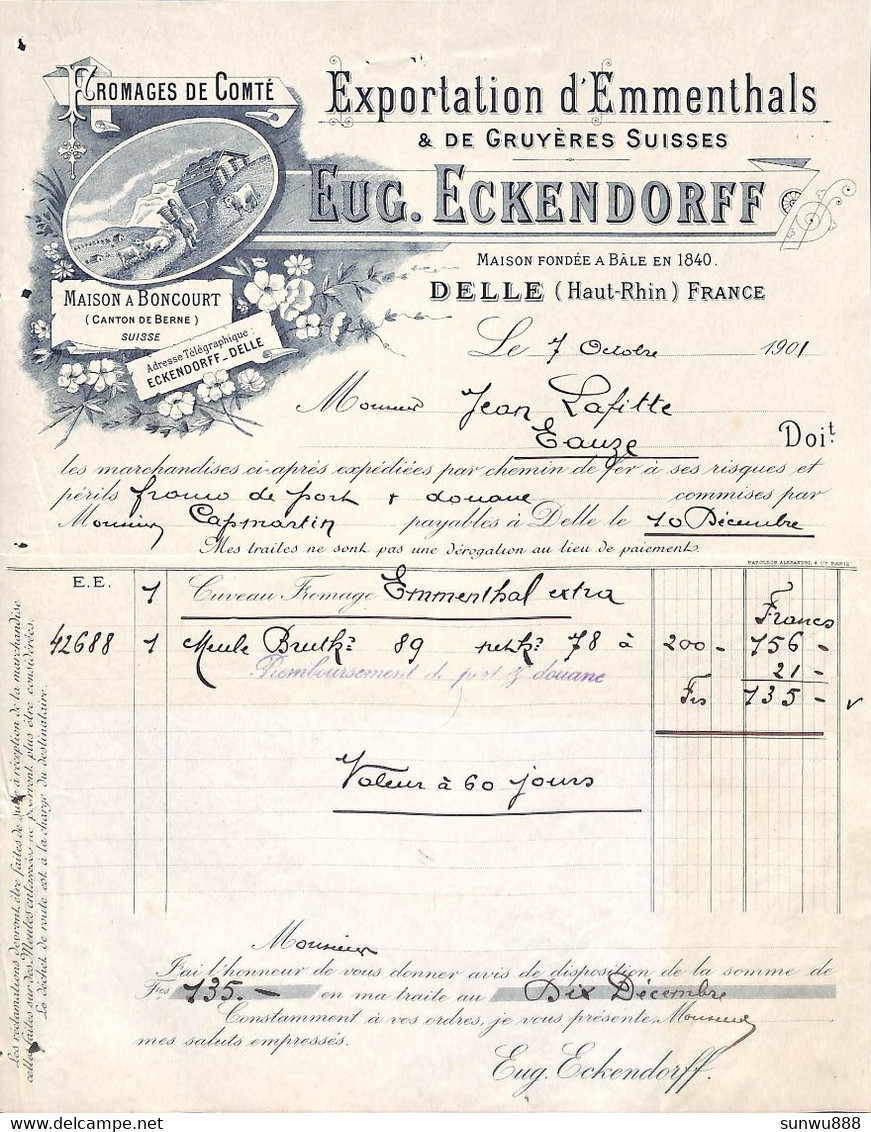 Fromages de Comté
Exportation d'Emmenthals
& de Gruyères Suisses
Eug. Eckendorff
Maison fondée a Bâle en 1840.
Delle (Haut-Rhin) France
Maison a Boncourt
(Canton de Berne)
Suisse
Adresse Télégraphique:
Eckendorff_Delle
Le 7 Octobre 1901
Monsieur Jean Lafitte
Eauze Doit
les marchandises ci-après expédiées par chemin de fer à ses risques et
périls franco de port & douane commises par
Monsieur Capmartin payables à Delle le 10 Décembre
Mes traites ne sont pas une dérogation au lieu de paiement.
Napoléon Alexandre, & Cie Paris
E.E. 1 Cuveau Fromage Emmenthal extra
Francs
42688 1 Meule Brutk: 89 netk: 78 à 200 - 156 -
Remboursement de port & douane 21 -
Frs 135 -
Valeur à 60 jours
Les réclamations devront être faites de suite à réception de la marchandise
celles faites sur des Meules entamées ne pourront plus être considérées.
Le déchet de route est à la charge du destinataire.
Monsieur
J'ai l'honneur de vous donner avis de disposition de la somme de
Frcs 135.- en ma traite au Dix Décembre
Constamment à vos ordres, je vous présente, Monsieur
mes saluts empressés.
Eug. Eckendorff.
sunwu888